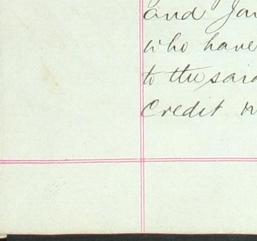 and Jan
who have
to the said
Credit